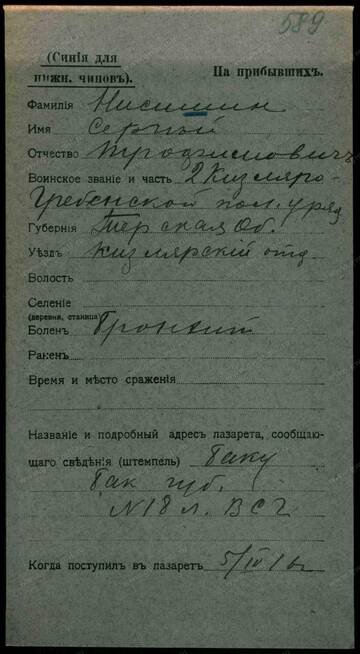 589
(Синія для
нижн. чиновъ).
На прибывшихъ.
Фамилія Нисишин
Имя Сергѣй
Отчество Трофимовичъ
Воинское званіе и часть 2 Кизляро-
Гребенской пол. уряд
Губернія Терская Об.
Уѣздъ Кизлярскій отд.
Волость
Селеніе
(деревня, станица)
Боленъ Бронхит
Раненъ
Время и мѣсто сраженія
Названіе и подробный адресъ лазарета, сообщаю-
щаго свѣдѣнія (штемпель) Баку
Бак губ.
N18 л. ВСГ
Когда поступилъ въ лазаретъ 5/IV 16